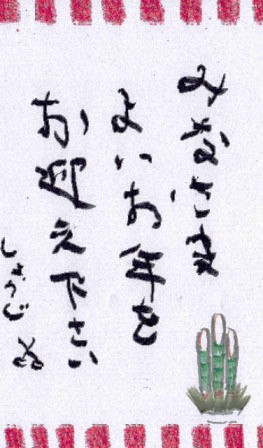 みなさま
よいお年を
お迎え下さい
しょうじ